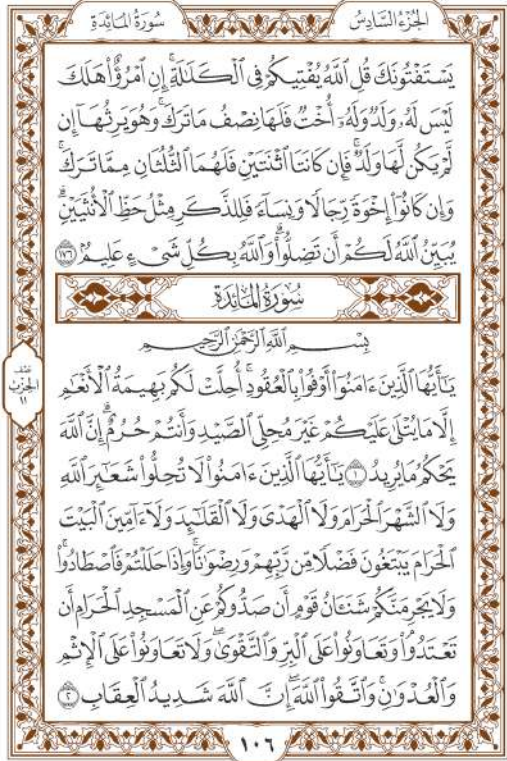 الجُزْءُ السَّادِسُ
سُورَةُ المَائِدَةِ
يَسْتَفْتُونَكَ قُلِ ٱللَّهُ يُفْتِيكُمْ فِي ٱلْكَلَٰلَةِۚ إِنِ ٱمْرُؤٌاْ هَلَكَ
لَيْسَ لَهُۥ وَلَدٌ وَلَهُۥٓ أُخْتٌ فَلَهَا نِصْفُ مَا تَرَكَۚ وَهُوَ يَرِثُهَآ إِن
لَّمْ يَكُن لَّهَا وَلَدٌۚ فَإِن كَانَتَا ٱثْنَتَيْنِ فَلَهُمَا ٱلثُّلُثَانِ مِمَّا تَرَكَۚ
وَإِن كَانُوٓاْ إِخْوَةً رِّجَالًا وَنِسَآءً فَلِلذَّكَرِ مِثْلُ حَظِّ ٱلْأُنثَيَيْنِۗ
يُبَيِّنُ ٱللَّهُ لَكُمْ أَن تَضِلُّواْۗ وَٱللَّهُ بِكُلِّ شَيْءٍ عَلِيمٌۢ ١٧٦
سُورَةُ المَائِدَةِ
بِسْمِ ٱللَّهِ ٱلرَّحْمَٰنِ ٱلرَّحِيمِ
يَٰٓأَيُّهَا ٱلَّذِينَ ءَامَنُوٓاْ أَوْفُواْ بِٱلْعُقُودِۚ أُحِلَّتْ لَكُم بَهِيمَةُ ٱلْأَنْعَٰمِ
إِلَّا مَا يُتْلَىٰ عَلَيْكُمْ غَيْرَ مُحِلِّي ٱلصَّيْدِ وَأَنتُمْ حُرُمٌۗ إِنَّ ٱللَّهَ
يَحْكُمُ مَا يُرِيدُ ١ يَٰٓأَيُّهَا ٱلَّذِينَ ءَامَنُواْ لَا تُحِلُّواْ شَعَٰٓئِرَ ٱللَّهِ
وَلَا ٱلشَّهْرَ ٱلْحَرَامَ وَلَا ٱلْهَدْيَ وَلَا ٱلْقَلَٰٓئِدَ وَلَآ ءَآمِّينَ ٱلْبَيْتَ
ٱلْحَرَامَ يَبْتَغُونَ فَضْلًا مِّن رَّبِّهِمْ وَرِضْوَٰنًاۚ وَإِذَا حَلَلْتُمْ فَٱصْطَادُواْۚ
وَلَا يَجْرِمَنَّكُمْ شَنَـَٔانُ قَوْمٍ أَن صَدُّوكُمْ عَنِ ٱلْمَسْجِدِ ٱلْحَرَامِ أَن
تَعْتَدُواْۘ وَتَعَاوَنُواْ عَلَى ٱلْبِرِّ وَٱلتَّقْوَىٰۖ وَلَا تَعَاوَنُواْ عَلَى ٱلْإِثْمِ
وَٱلْعُدْوَٰنِۚ وَٱتَّقُواْ ٱللَّهَۖ إِنَّ ٱللَّهَ شَدِيدُ ٱلْعِقَابِ ٢
نصف
الحزب
١١
١٠٦